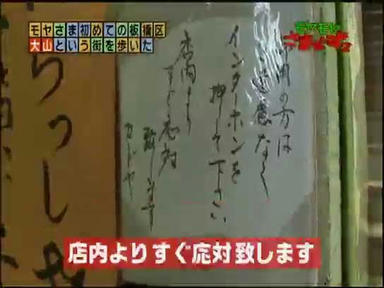 モヤさま初めての板橋区
大山という街を歩いた
モヤモヤ
さまぁ〜ず2
らっしゃ
内の方は
遠慮なく
インターホンを
押して下さい
店内より
すぐ応対
致します
カドヤ
店内よりすぐ応対致します